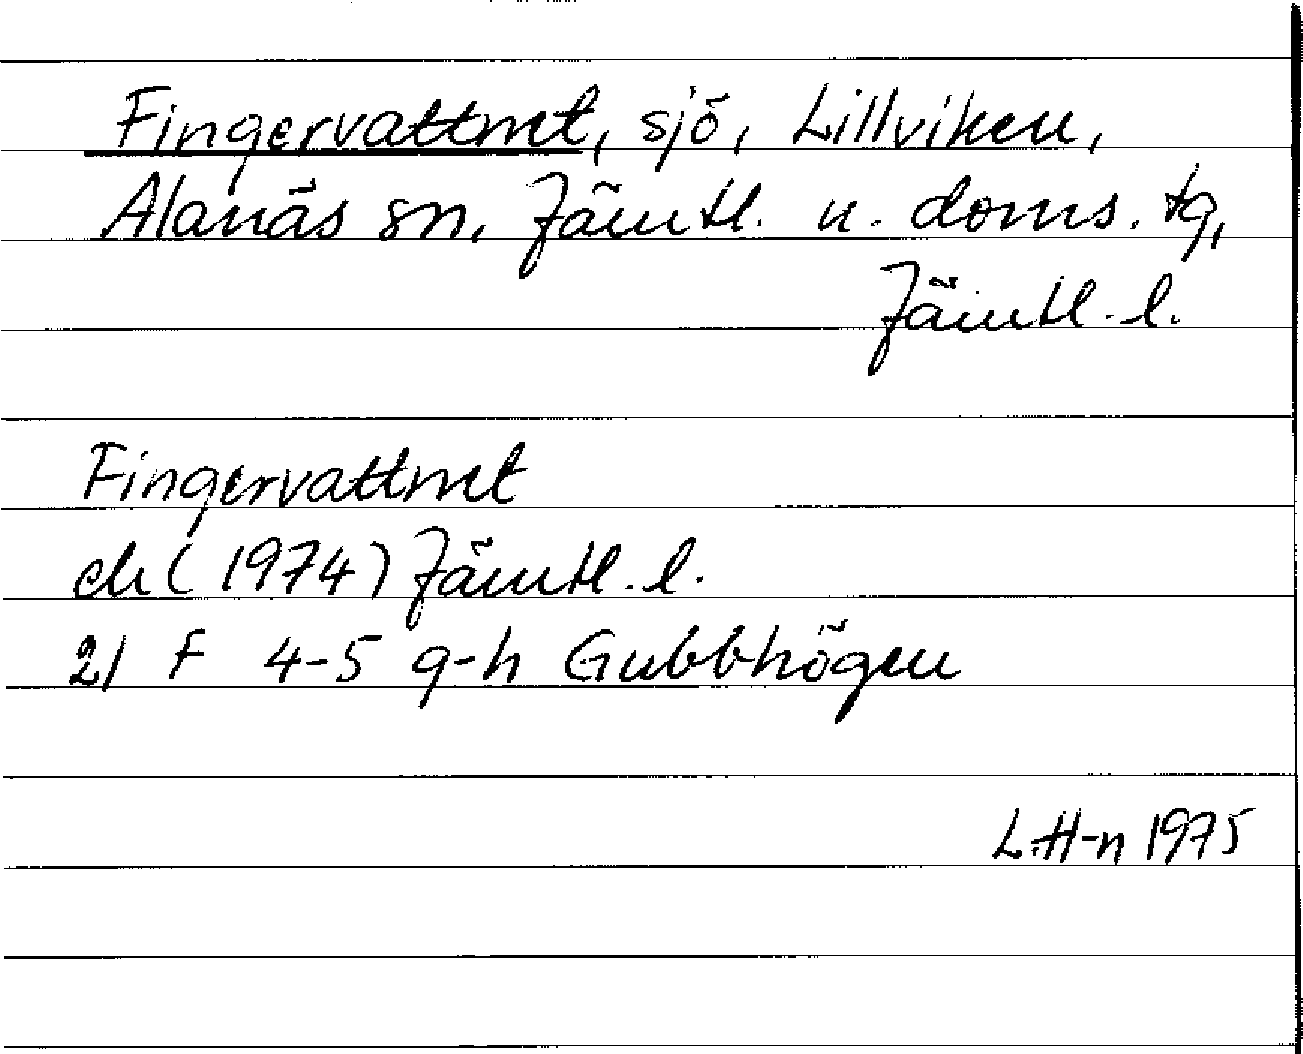 Fingervattnet, sjö, Lillviken,
Alanäs sn, Jämtl. n. doms. tg,
Jämtl. l.
Fingervattnet
ek (1974) Jämtl. l.
21 F 4-5 g-h Gubbhögen
L.H-n 1975